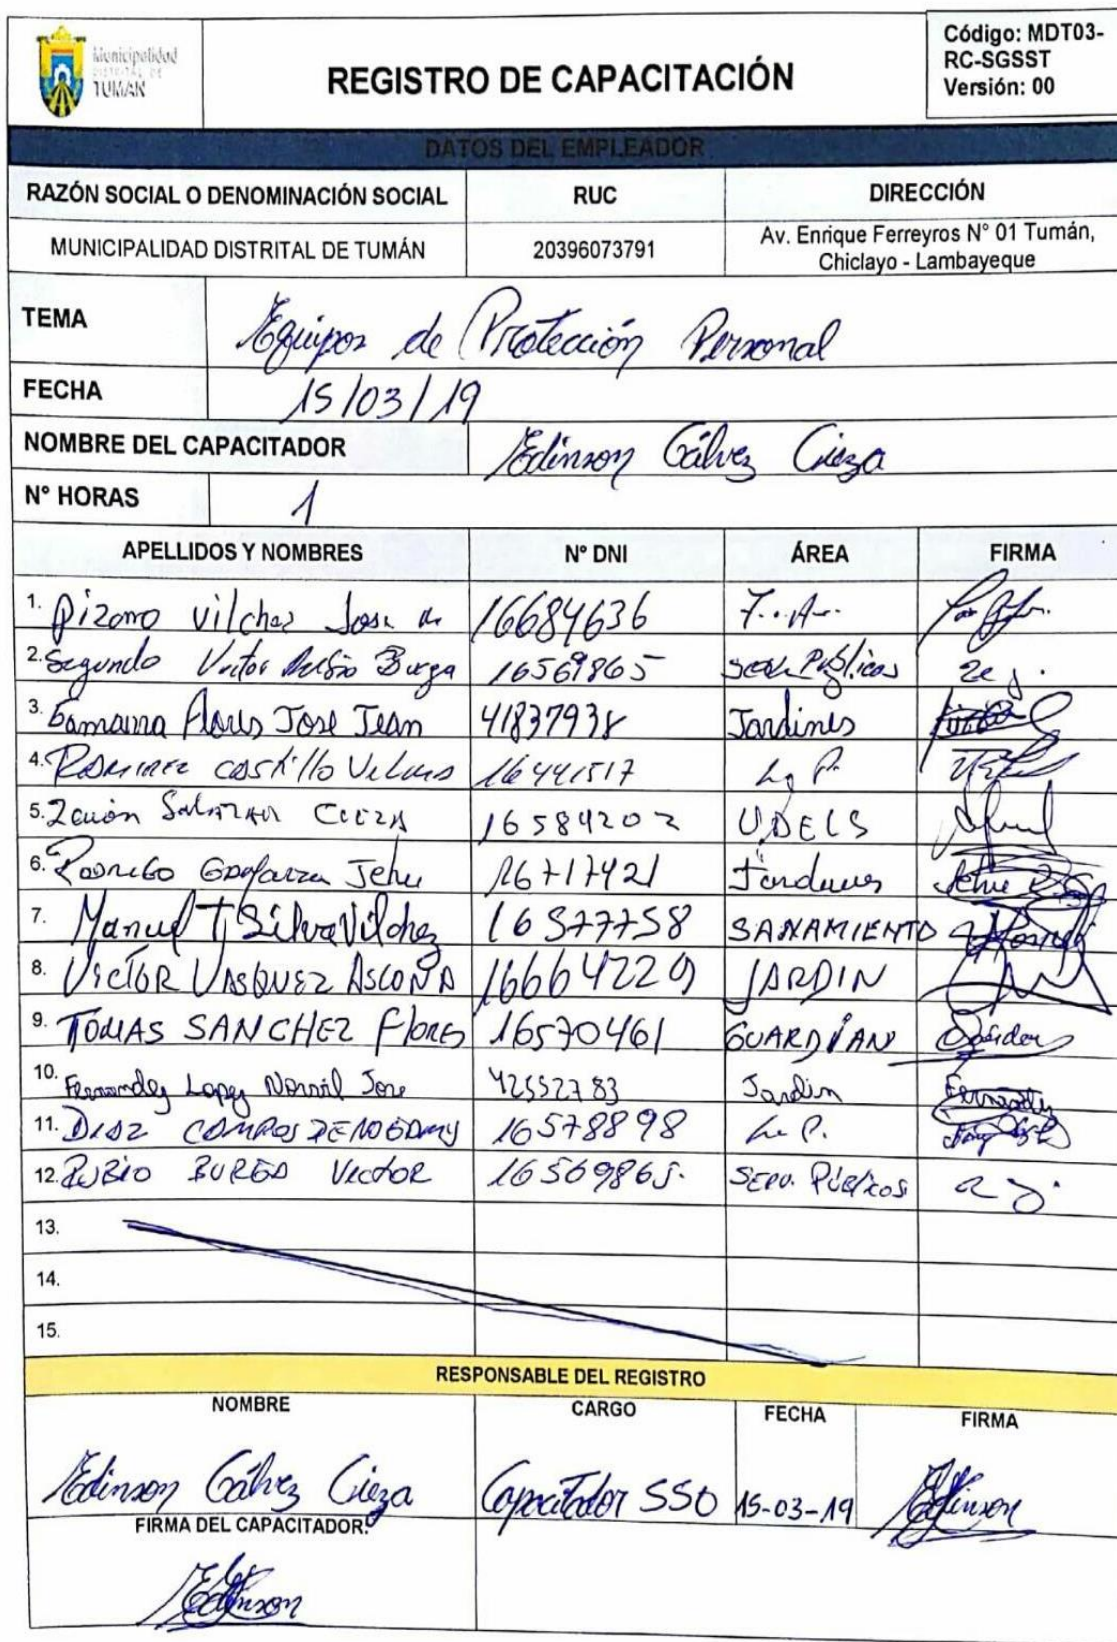 Municipalidad
DISTRITAL DE
TUMAN
REGISTRO DE CAPACITACIÓN
Código: MDT03-
RC-SGSST
Versión: 00
DATOS DEL EMPLEADOR
RAZÓN SOCIAL O DENOMINACIÓN SOCIAL RUC DIRECCIÓN
MUNICIPALIDAD DISTRITAL DE TUMÁN 20396073791 Av. Enrique Ferreyros N° 01 Tumán,
Chiclayo - Lambayeque
TEMA Equipos de Protección Personal
FECHA 15/03/19
NOMBRE DEL CAPACITADOR Edinson Gálvez Cieza
N° HORAS 1
APELLIDOS Y NOMBRES N° DNI ÁREA FIRMA
1. Pizarro Vilchez Jose 16684636
2. Segundo Victor Rubio Burga 16569865 Serv. Públicos
3. Gamarra Flores Jose Jean 41837938 Jardines
4. Ramirez Castillo 16441517 L. P.
5. Salazar Cieza 16584202 UDELS
6. Rodrigo Jehu 16717421 Jardines
7. Manuel T Silva Vilchez 16577758 SANAMIENTO
8. VICTOR VASQUEZ ASCOÑA 16664229 JARDIN
9. TOMAS SANCHEZ Flores 16570461 GUARDIAN
10. Fernandez Lopez Norvil Jose 42552783 Jardin Fernandez
11. DIAZ CAMPOS 16578898 L. P.
12. RUBIO BURGA Victor 16569865. SERV. Públicos
13.
14.
15.
RESPONSABLE DEL REGISTRO
NOMBRE CARGO FECHA FIRMA
Edinson Gálvez Cieza Capacitador SSO 15-03-19 Edinson
FIRMA DEL CAPACITADOR:
Edinson